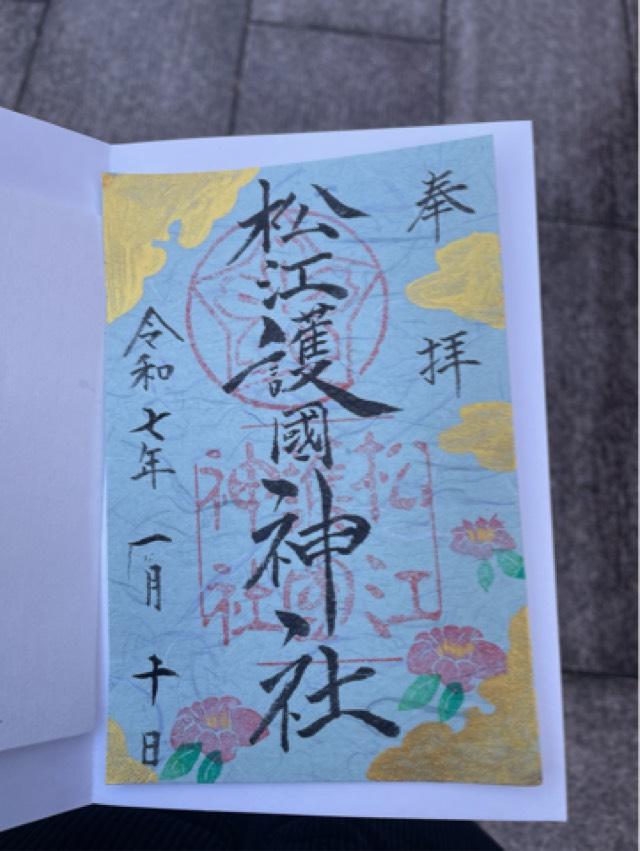 奉拝
松江護國神社
松江
護国
神社
令和七年 一月 十日